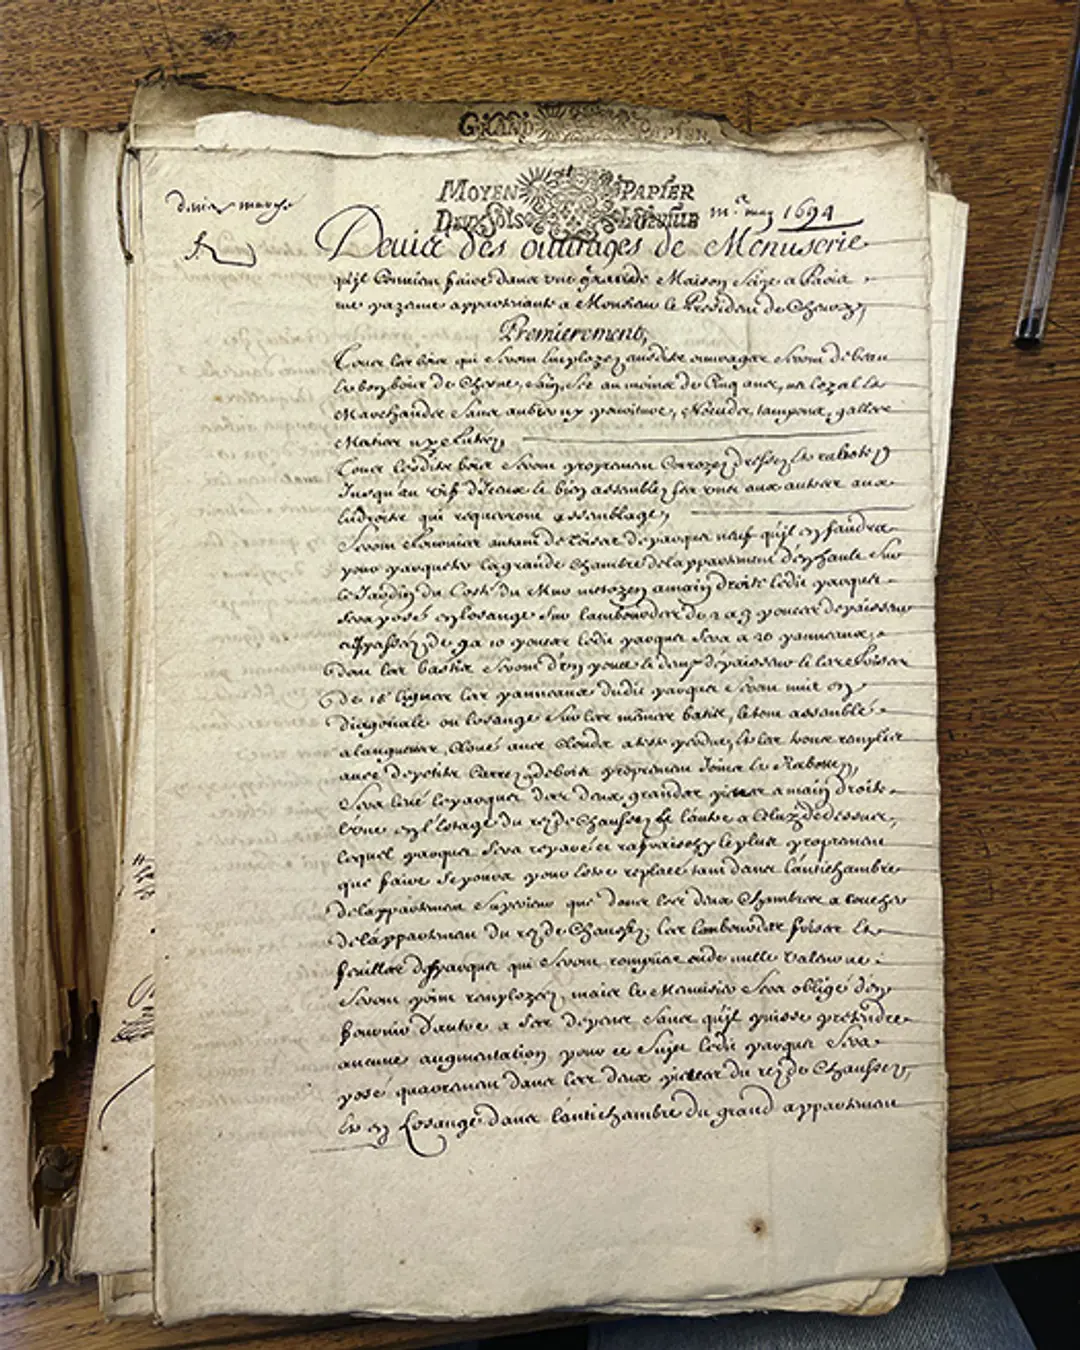 GRAND PAPIER
MOYEN PAPIER
DEUX SOLS LA FEUILLE
devis marché
may 1694
Devis des ouurages de Menuserie
qu'il Conuient faire dans une grande Maison Size a Paris
rue appartenante a Monsieur le President de
Premierement,
Tous les bois qui Seront Employez ausdits ouurages Seront de beau
et bon bois de Chesne, Sain, Sec au moins de Cinq ans, et Lozal et
Marchandes Sans aubier ny pouriture, Noeuds, tampons, galles
Mastics ny futée,
Tous Lesdits bois Seront proprement Corroyez dressez et rabotez
Jusqu'au vif d'Iceux et bien assemblez les uns aux autres aux
Endroits qui requereront assemblage,
Seront fournies autant de toises de parquet neuf qu'il en faudra
pour parqueter la grande Chambre de l'appartement d'en hault Sur
le Jardin du Costé du Mur mitoyen a main droite ledit parquet
Sera posé en losange Sur lambourdes de 2 a 3 pouces depaisseur
de 9 a 10 pouces ledit parquet Sera a 20 panneaux,
dont les bastis Seront d'un pouce et demy depaisseur et les frises
de 15 lignes les panneaux dudit parquet Seront mis en
diagonale ou losange Sur les mêmes batis, le tout assemblé
a languettes, Cloué auec Clouds a teste perdue, et les trous remplis
auec de petits Carrez de bois proprement Joints et Rabotez,
Sera leué le parquet des deux grandes pieces a main droite
l'une en l'Estage du rez de Chaussée et l'autre a Celuy de dessus,
lequel parquet Sera reparé et rafraischy le plus proprement
que faire Se poura pour Estre replacé tant dans l'antichambre
de l'appartement Superieur que dans les deux Chambres a coucher
de l'appartement du rez de Chaussée, les lambourdes frises et
feuilles de parquet qui Seront rompues ou de nulle valeur ne
Seront point remployez, mais le Menuisier Sera obligé d'en
fournir d'autres a Ses depens Sans qu'il puisse pretendre
aucune augmentation pour ce Sujet ledit parquet Sera
posé quarrement dans les deux pieces du rez de Chaussée,
et en Losange dans l'antichambre du grand appartement